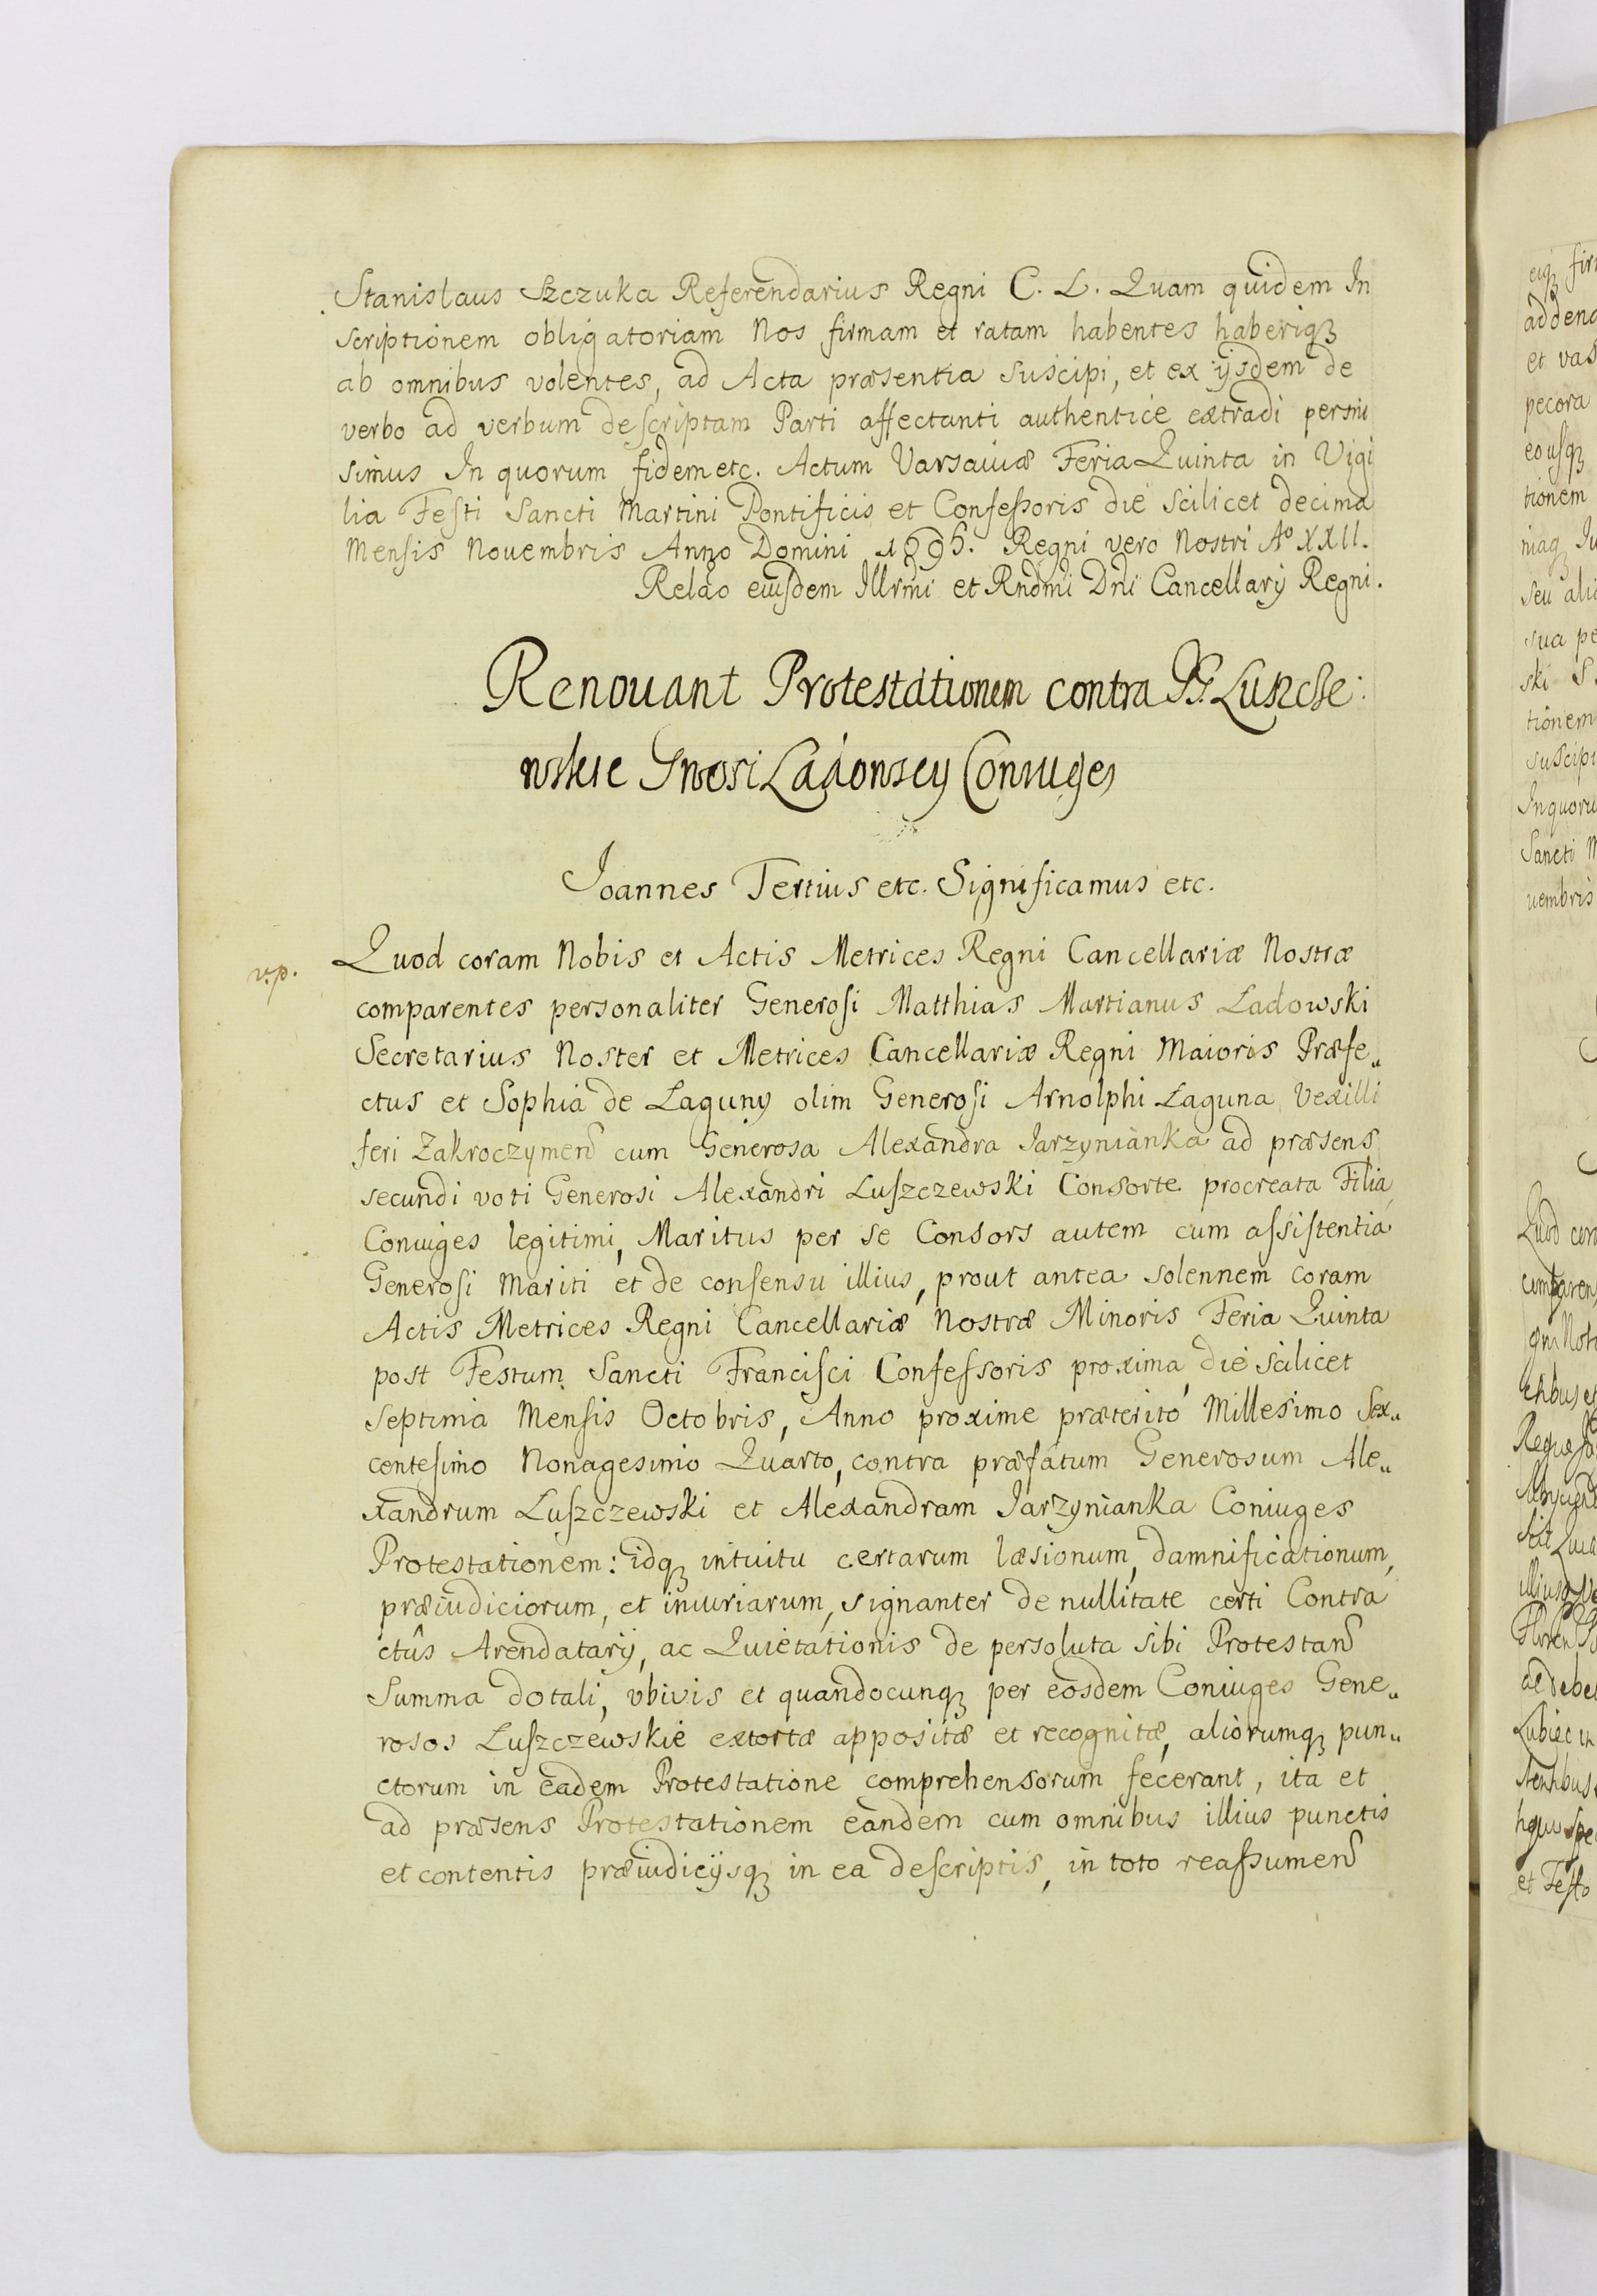 Stanislaus Szczuka Referendarius Regni C. L. Quam quidem In
scriptionem obligatoriam Nos firmam et ratam habentes haberiqꝫ
ab omnibus volentes, ad Acta præsentia suscipi, et ex ijsdem de
verbo ad verbum descriptam Parti affectanti authentice extradi permi
simus In quorum fidem etc. Actum Varsaviæ Feria Quinta in Vigi
lia Festi Sancti Martini Pontificis et Confessoris die scilicet decima
Mensis Novembris Anno Domini 1695. Regni vero Nostri Aº XXII.
Relao eiusdem Illrmi et Rndmi Dni Cancellarij Regni.
Renouant Protestationem contra GG. Luszcze:
wskie Gnosi Ladowscy Coniuges
Joannes Tertius etc. Significamus etc.
v.p.
Quod coram Nobis et Actis Metrices Regni Cancellariæ Nostræ
comparentes personaliter Generosi Matthias Martianus Ladowski
Secretarius Noster et Metrices Cancellariæ Regni Maioris Præfe„
ctus et Sophia de Laguny olim Generosi Arnolphi Laguna Vexilli
feri Zakroczymen cum Generosa Alexandra Jarzynianka ad præsens
secundi voti Generosi Alexandri Luszczewski Consorte procreata Filia
Coniuges legitimi, Maritus per se Consors autem cum assistentia
Generosi Mariti et de consensu illius, prout antea solennem coram
Actis Metrices Regni Cancellariæ Nostræ Minoris Feria Quinta
post Festum Sancti Francisci Confessoris proxima, die scilicet
septima Mensis Octobris, Anno proxime præterito Millesimo Sex„
centesimo Nonagesimo Quarto, contra præfatum Generosum Ale„
xandrum Luszczewski et Alexandram Jarzynianka Coniuges
Protestationem: idqꝫ intuitu certarum læsionum, damnificationum,
præiudiciorum, et iniuriarum, signanter de nullitate certi Contra
ctûs Arendatarij, ac Quietationis de persoluta sibi Protestan
Summa dotali, vbivis et quandocunqꝫ per eosdem Coniuges Gene„
rosos Luszczewskie extortæ appositæ et recognitæ, aliorumqꝫ pun„
ctorum in eadem Protestatione comprehensorum fecerant, ita et
ad præsens Protestationem eandem cum omnibus illius punctis
et contentis præiudicijsqꝫ in ea descriptis, in toto reassumen